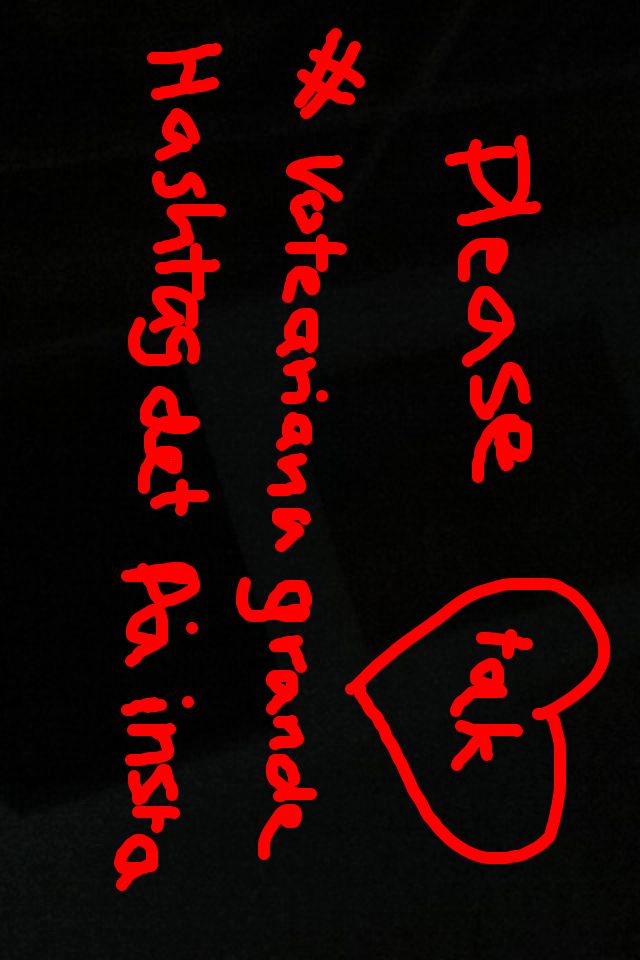 Please tak
# Voteariana grande
Hashtag det på insta